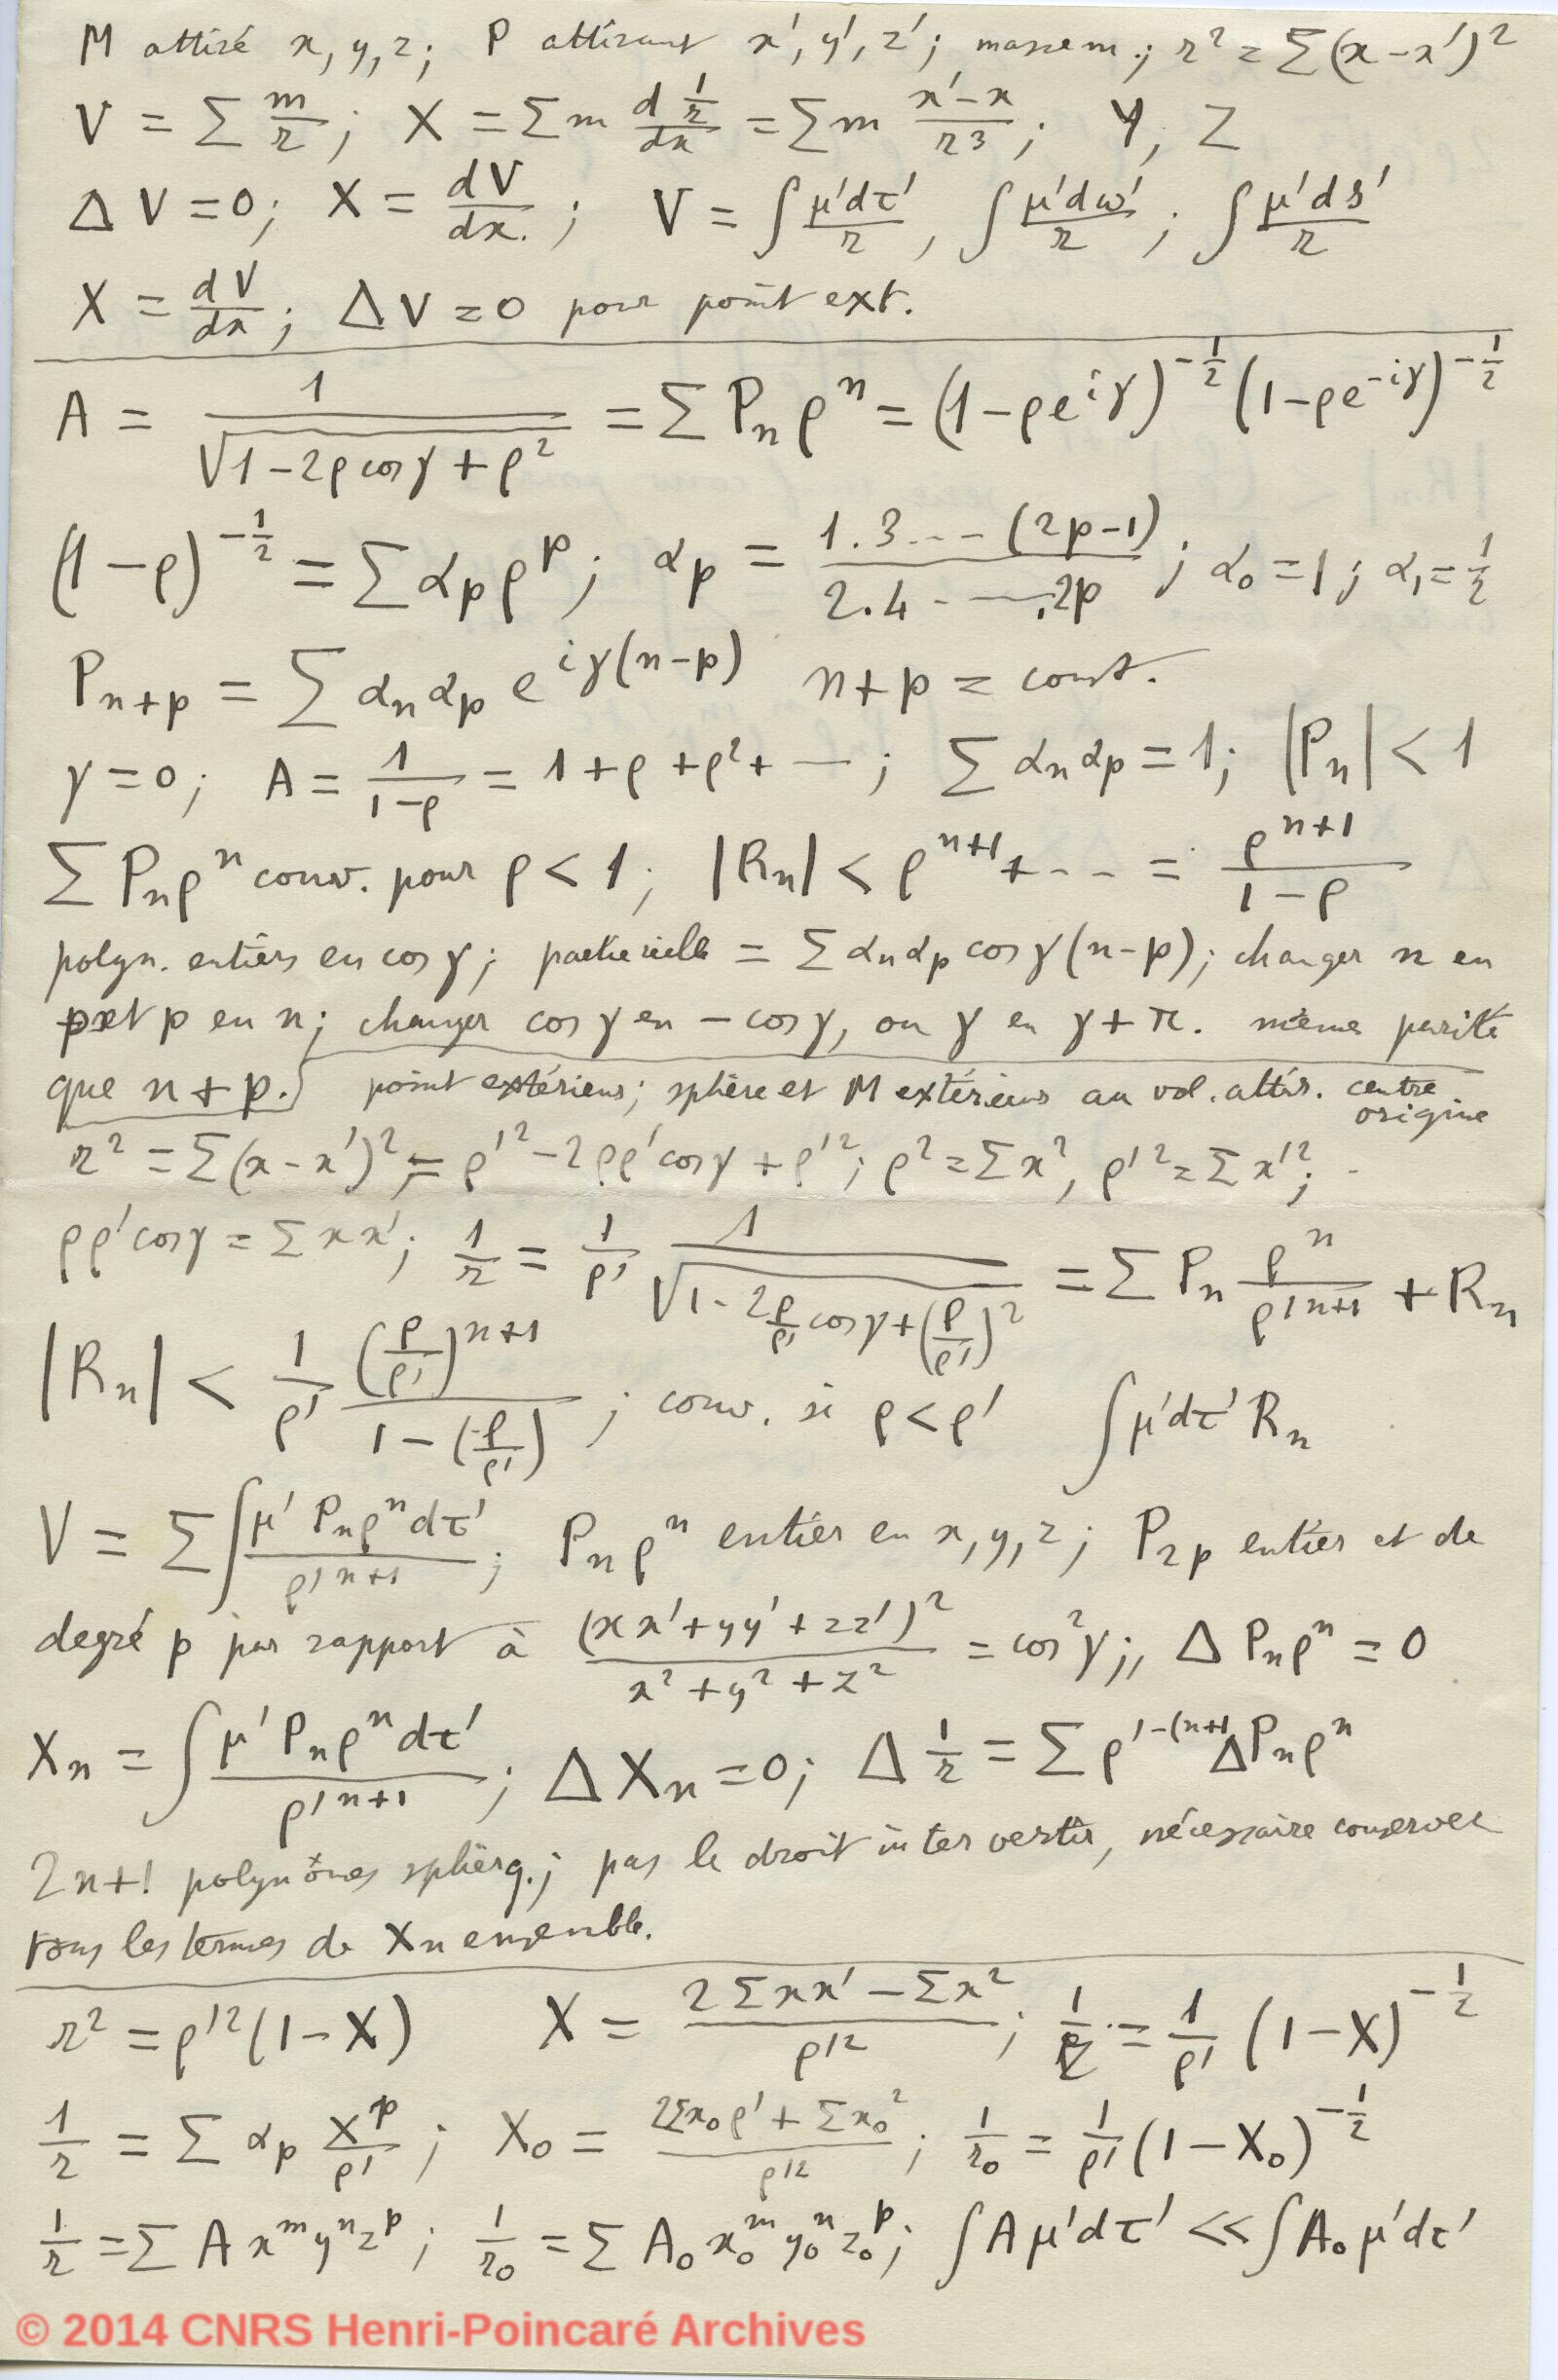 M attiré x, y, z; P attirant x', y', z'; masse m.; r² = Σ(x-x')²
V = Σ m/r; X = Σ m d(1/r)/dx = Σ m (x'-x)/r³; Y, Z
ΔV = 0; X = dV/dx.; V = ∫ μ'dτ'/r, ∫ μ'dω'/r; ∫ μ'ds'/r
X = dV/dx; ΔV = 0 pour point ext.
A = 1/√(1-2ρ cos γ + ρ²) = Σ Pₙ ρⁿ = (1-ρe^{iγ})^{-1/2} (1-ρe^{-iγ})^{-1/2}
(1-ρ)^{-1/2} = Σ α_p ρ^p; α_p = 1.3...(2p-1)/2.4-—.2p; α₀ = 1; α₁ = 1/2
P_{n+p} = Σ αₙ α_p e^{iγ(n-p)} n+p = const.
γ = 0; A = 1/(1-ρ) = 1+ρ+ρ²+—; Σ αₙ α_p = 1; |Pₙ| < 1
Σ Pₙρⁿ conv. pour ρ < 1; |Rₙ| < ρ^{n+1}+... = ρ^{n+1}/(1-ρ)
polyn. entiers en cos γ; partie réelle = Σ αₙ α_p cos γ(n-p); changer n en
p et p en n; changer cos γ en -cos γ, ou γ en γ+π. même parité
que n+p. point extérieur; sphère et M extérieurs au vol. attir. centre origine
r² = Σ(x-x')²; = ρ'² - 2ρρ' cos γ + ρ'²; ρ² = Σx², ρ'² = Σx'²;
ρρ' cos γ = Σ xx'; 1/r = 1/ρ' 1/√(1-2 ρ/ρ' cos γ + (ρ/ρ')²) = Σ Pₙ ρⁿ/ρ'^{n+1} + Rₙ
|Rₙ| < 1/ρ' (ρ/ρ')^{n+1}/(1-(ρ/ρ')); conv. si ρ < ρ' ∫ μ'dτ' Rₙ
V = Σ ∫ μ' Pₙρⁿ dτ'/ρ'^{n+1}; Pₙρⁿ entier en x, y, z; P_{2p} entier et de
degré p par rapport à (xx'+yy'+zz')²/(x²+y²+z²) = cos²γ;, Δ Pₙρⁿ = 0
Xₙ = ∫ μ' Pₙρⁿ dτ'/ρ'^{n+1}; ΔXₙ = 0; Δ 1/r = Σ ρ'^{-(n+1} ΔPₙρⁿ
2n+1 polynômes sphérq.; pas le droit intervertir, nécessaire conserver
tous les termes de Xₙ ensemble.
r² = ρ'²(1-X) X = (2Σxx' - Σx²)/ρ'²; 1/r = 1/ρ' (1-X)^{-1/2}
1/r = Σ α_p X^p/ρ'; X₀ = (2Σx₀ρ' + Σx₀²)/ρ'²; 1/r₀ = 1/ρ' (1-X₀)^{-1/2}
1/r = Σ A x^m y^n z^p; 1/r₀ = Σ A₀ x₀^m y₀^n z₀^p; ∫ A μ'dτ' << ∫ A₀ μ'dτ'
© 2014 CNRS Henri-Poincaré Archives